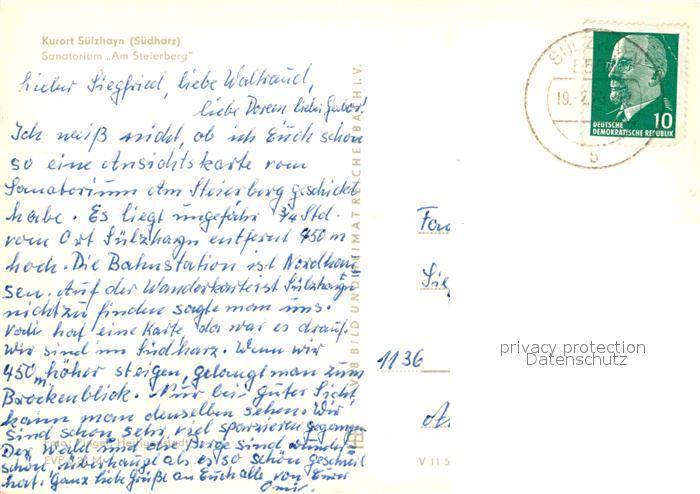 Kurort Sülzhayn (Südharz)
Sanatorium „Am Steierberg"
Lieber Siegfried, liebe Waltraud,
liebe Doreen lieber Gabor!
Ich weiß nicht, ob ich Euch schon
so eine Ansichtskarte vom
Sanatorium Am Steierberg geschickt
habe. Es liegt ungefähr 3/4 Std.
vom Ort Sülzhayn entfernt 450 m
hoch. Die Bahnstation ist Nordhau
sen. Auf der Wanderkarte ist Sülzhayn
nicht zu finden sagte man uns.
Vati hat eine Karte da war es drauf.
Wir sind im Südharz. Wenn wir
450 m höher steigen, gelangt man zum
Brockenblick. Nur bei guter Sicht
kann man denselben sehen. Wir
sind schon sehr viel spazieren gegangen
Der Wald und die Berge sind wunder
schön, überhaupt als es so schön geschneit
hat. Ganz liebe Grüße an Euch alle von Eurer
Omi.
VEB BILD UND HEIMAT REICHENBACH I. V.
SÜLZ
19. 2.
b
10
DEUTSCHE
DEMOKRATISCHE REPUBLIK
Fam
Sie
1136
V 11 5
privacy protection
Datenschutz